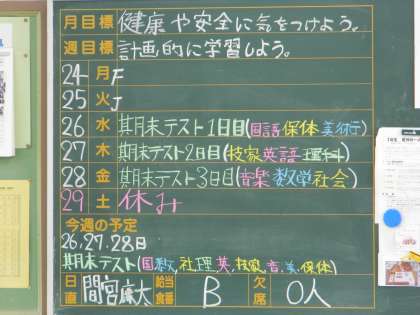 月目標 健康や安全に気をつけよう。
週目標 計画的に学習しよう。
24 月 F
25 火 J
26 水 期末テスト1日目(国語 保体 美術)
27 木 期末テスト2日目(技家 英語 理科)
28 金 期末テスト3日目(音楽 数学 社会)
29 土 休み
今週の予定
26,27,28日
期末テスト(国,数,社,理,英,技家,音,美,保体)
日直 間宮 康大 給当食番 B 欠席 0人